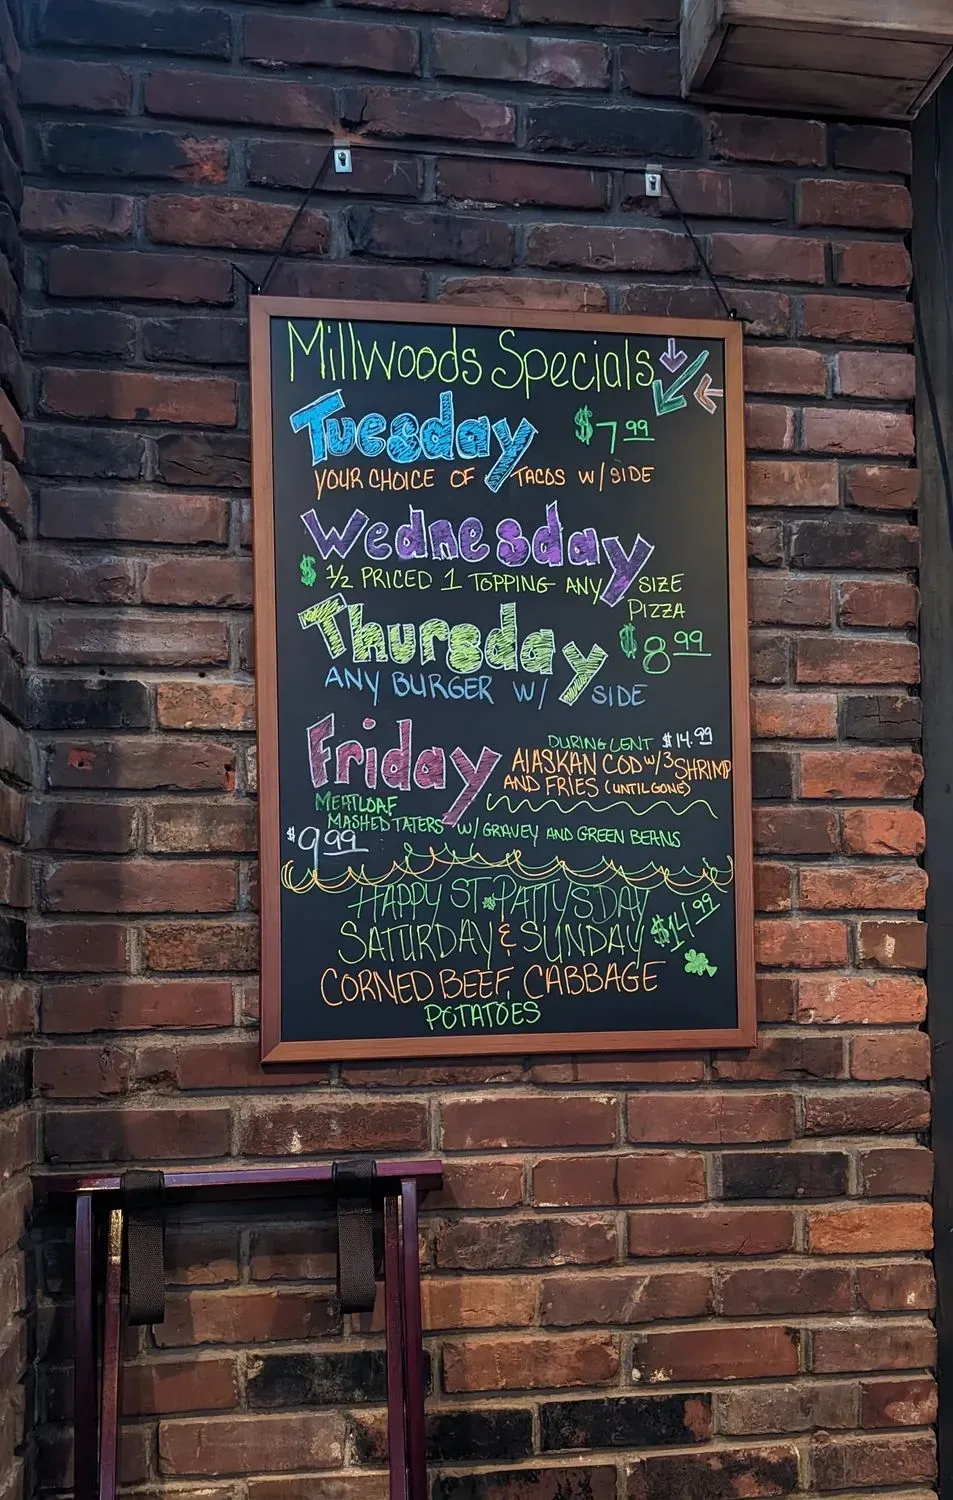 Millwoods Specials
Tuesday $7.99
YOUR CHOICE OF TACOS W/ SIDE
Wednesday
$ 1/2 PRICED 1 TOPPING ANY SIZE
PIZZA
Thursday $8.99
ANY BURGER W/ SIDE
Friday
DURING LENT $14.99
AlASKAN COD W/ 3 SHRIMP
AND FRIES (UNTIL GONE)
MEATLOAF
MASHED TATERS W/ GRAVEY AND GREEN BEANS
$9.99
HAPPY ST. PATTYSDAY
SATURDAY & SUNDAY $14.99
CORNED BEEF, CABBAGE
POTATOES